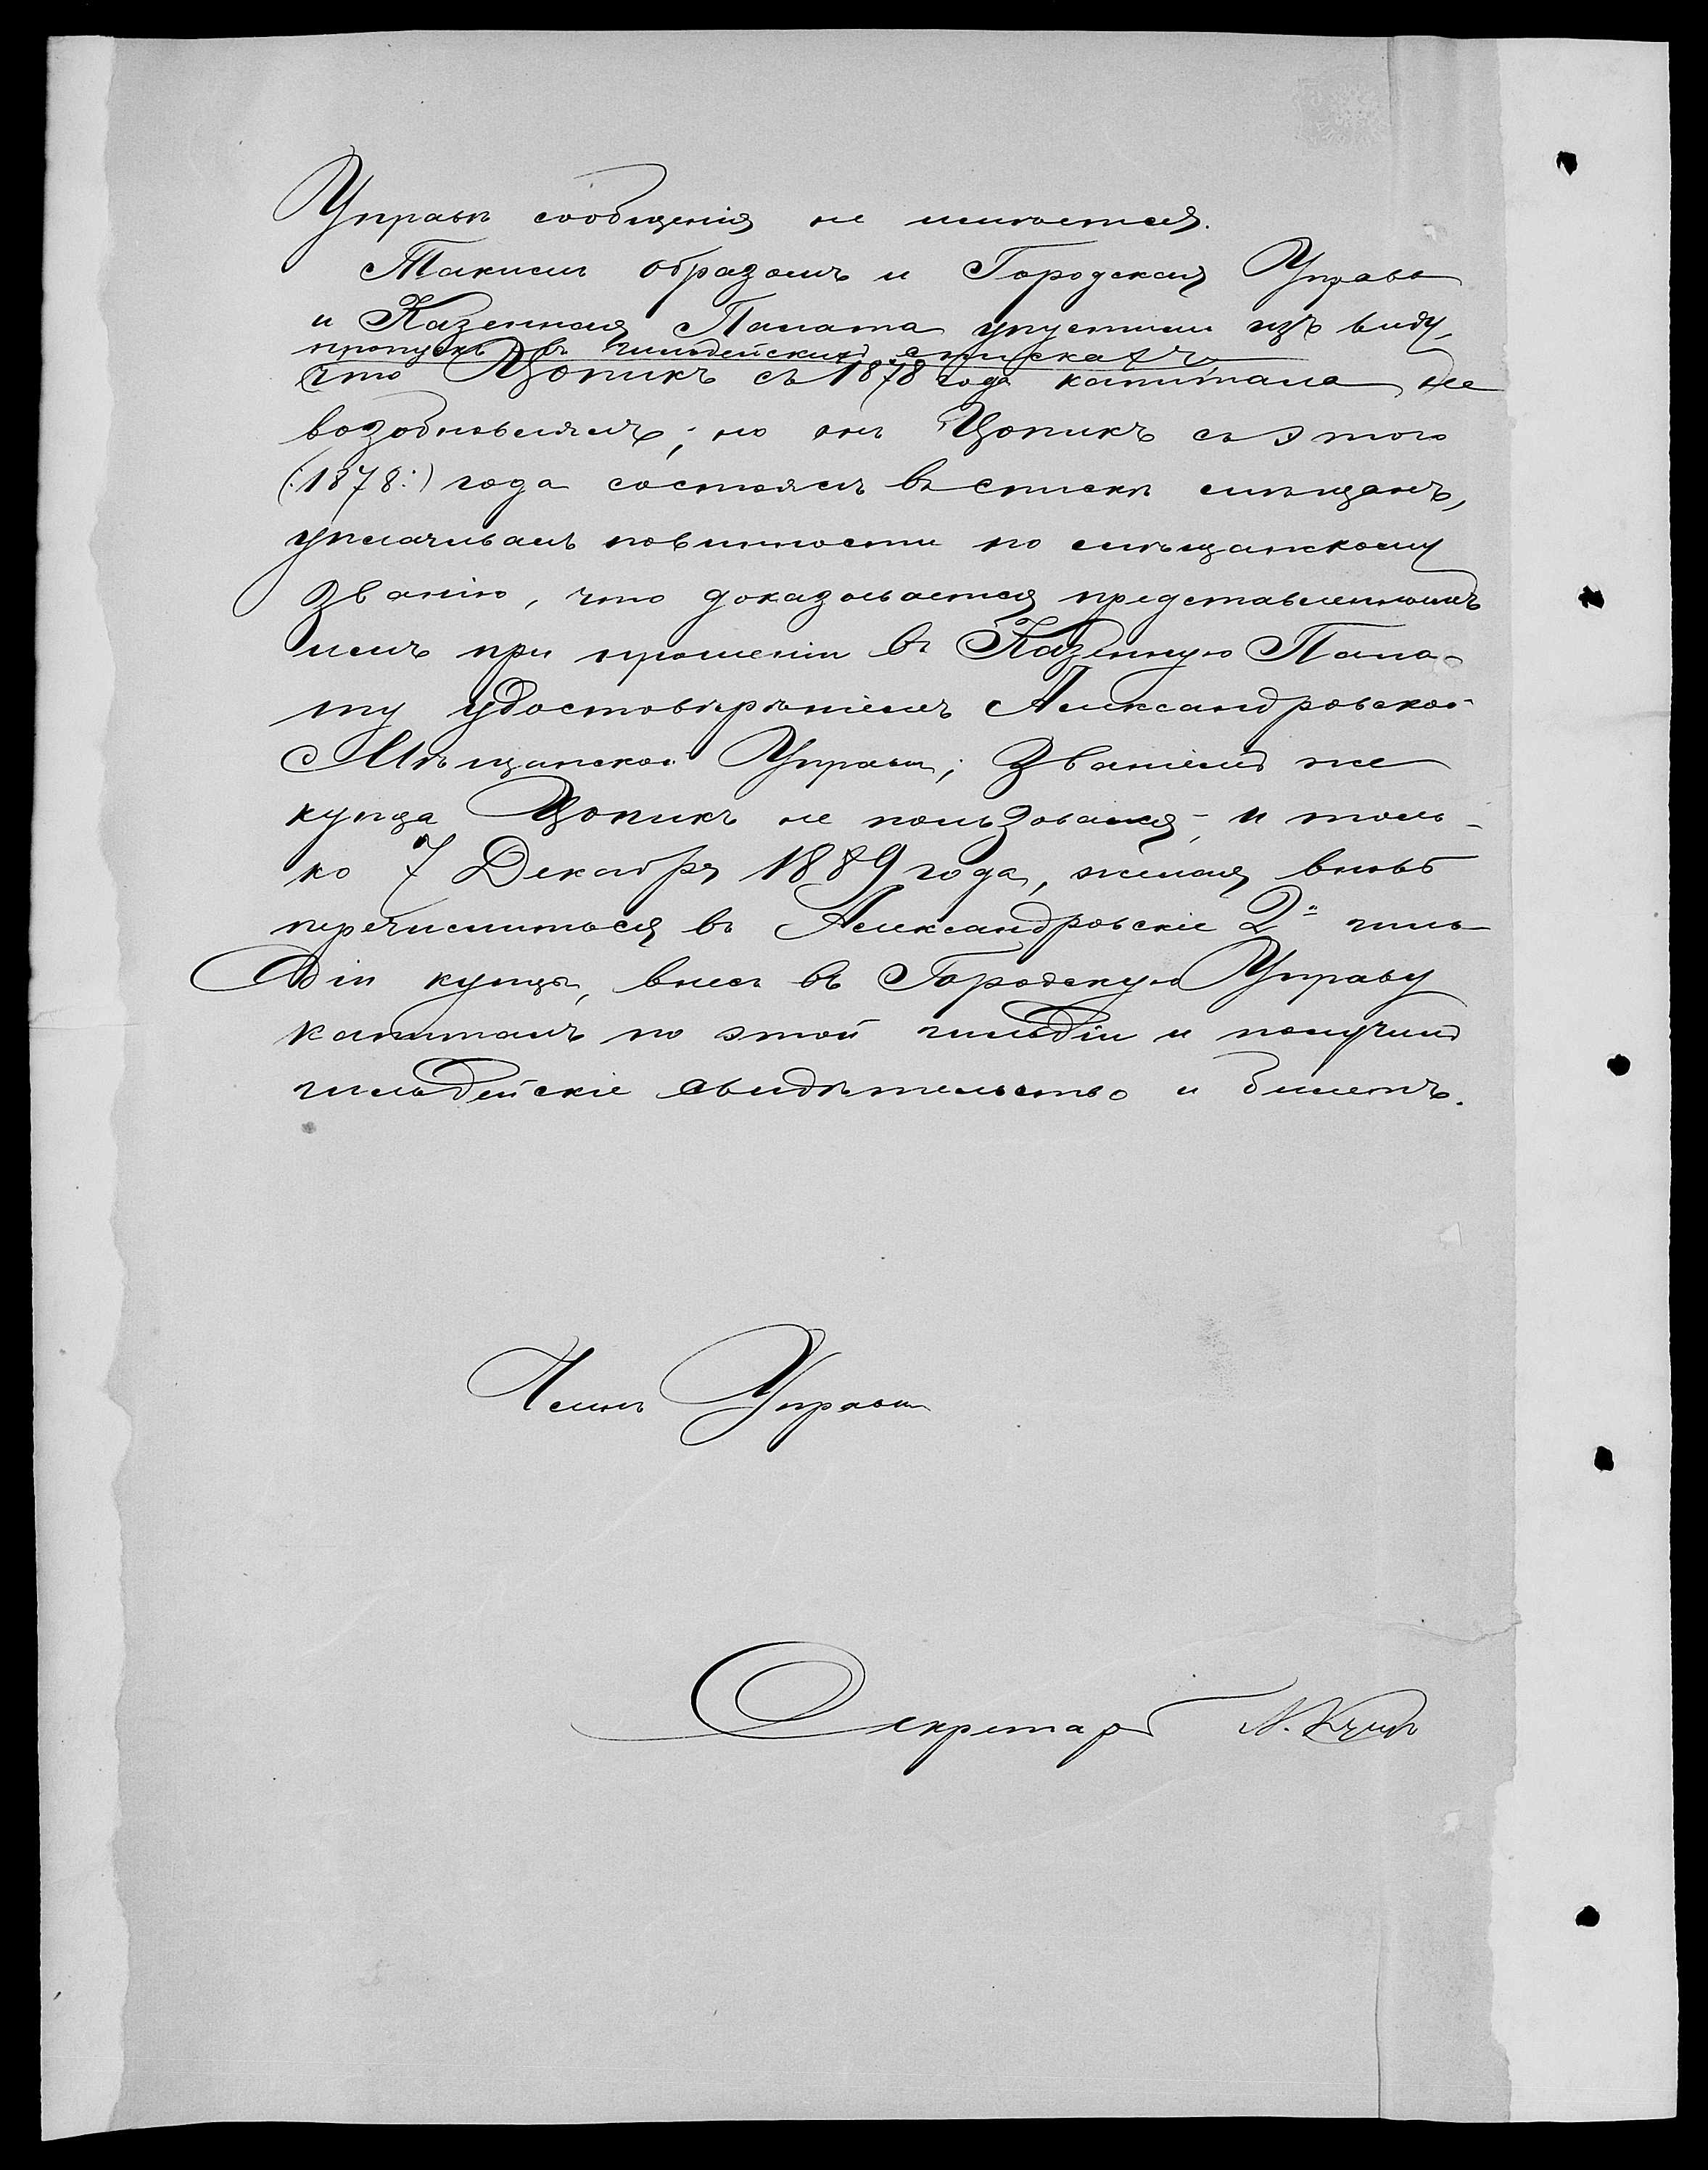 Управѣ сообщенія не имѣется.
Такимъ образомъ и Городская Управа
и Казенная Палата упустили изъ виду,
пропускъ въ гильдейскихъ спискахъ,
что Цопикъ съ 1878 года капитала не
возобновлялъ; но онъ Цопикъ съ этого
(:1878:) года состоялъ въ спискѣ мѣщанъ,
уплачивалъ повинности по мѣщанскому
званію, что доказывается представленнымъ
имъ при прошеніи въ Казенную Пала-
ту удостовѣреніемъ Александровской
Мѣщанской Управы; званіемъ же
купца Цопикъ не пользовался, и толь-
ко 7 Декабря 1889 года, желая вновь
перечислиться въ Александровскіе 2й гиль-
діи купцы, внесъ въ Городскую Управу
капиталъ по этой гильдіи и получилъ
гильдейскіе свидѣтельство и билетъ.
Членъ Управы
Секретарь